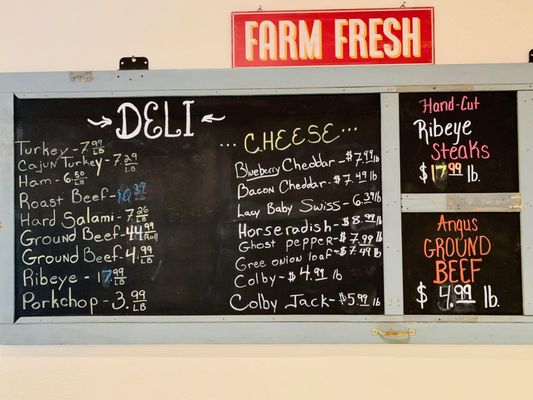 FARM FRESH
DELI
Turkey - 7.99 LB
Cajun Turkey - 7.29 LB
Ham - 6.50 LB
Roast Beef - 10.39 LB
Hard Salami - 7.26 LB
Ground Beef - 44.99 Roll
Ground Beef - 4.99 LB
Ribeye - 17.99 LB
Porkchop - 3.99 LB
CHEESE
Blueberry Cheddar - $7.49 lb
Bacon Cheddar - $7.49 lb
Lacy Baby Swiss - 6.39 lb
Horseradish - $8.99 lb
Ghost pepper - $7.99 lb
Gree onion loaf - $7.49 lb
Colby - $4.99 lb
Colby Jack - $5.99 lb
Hand-Cut
Ribeye
Steaks
$17.99 lb.
Angus
GROUND
BEEF
$4.99 lb.